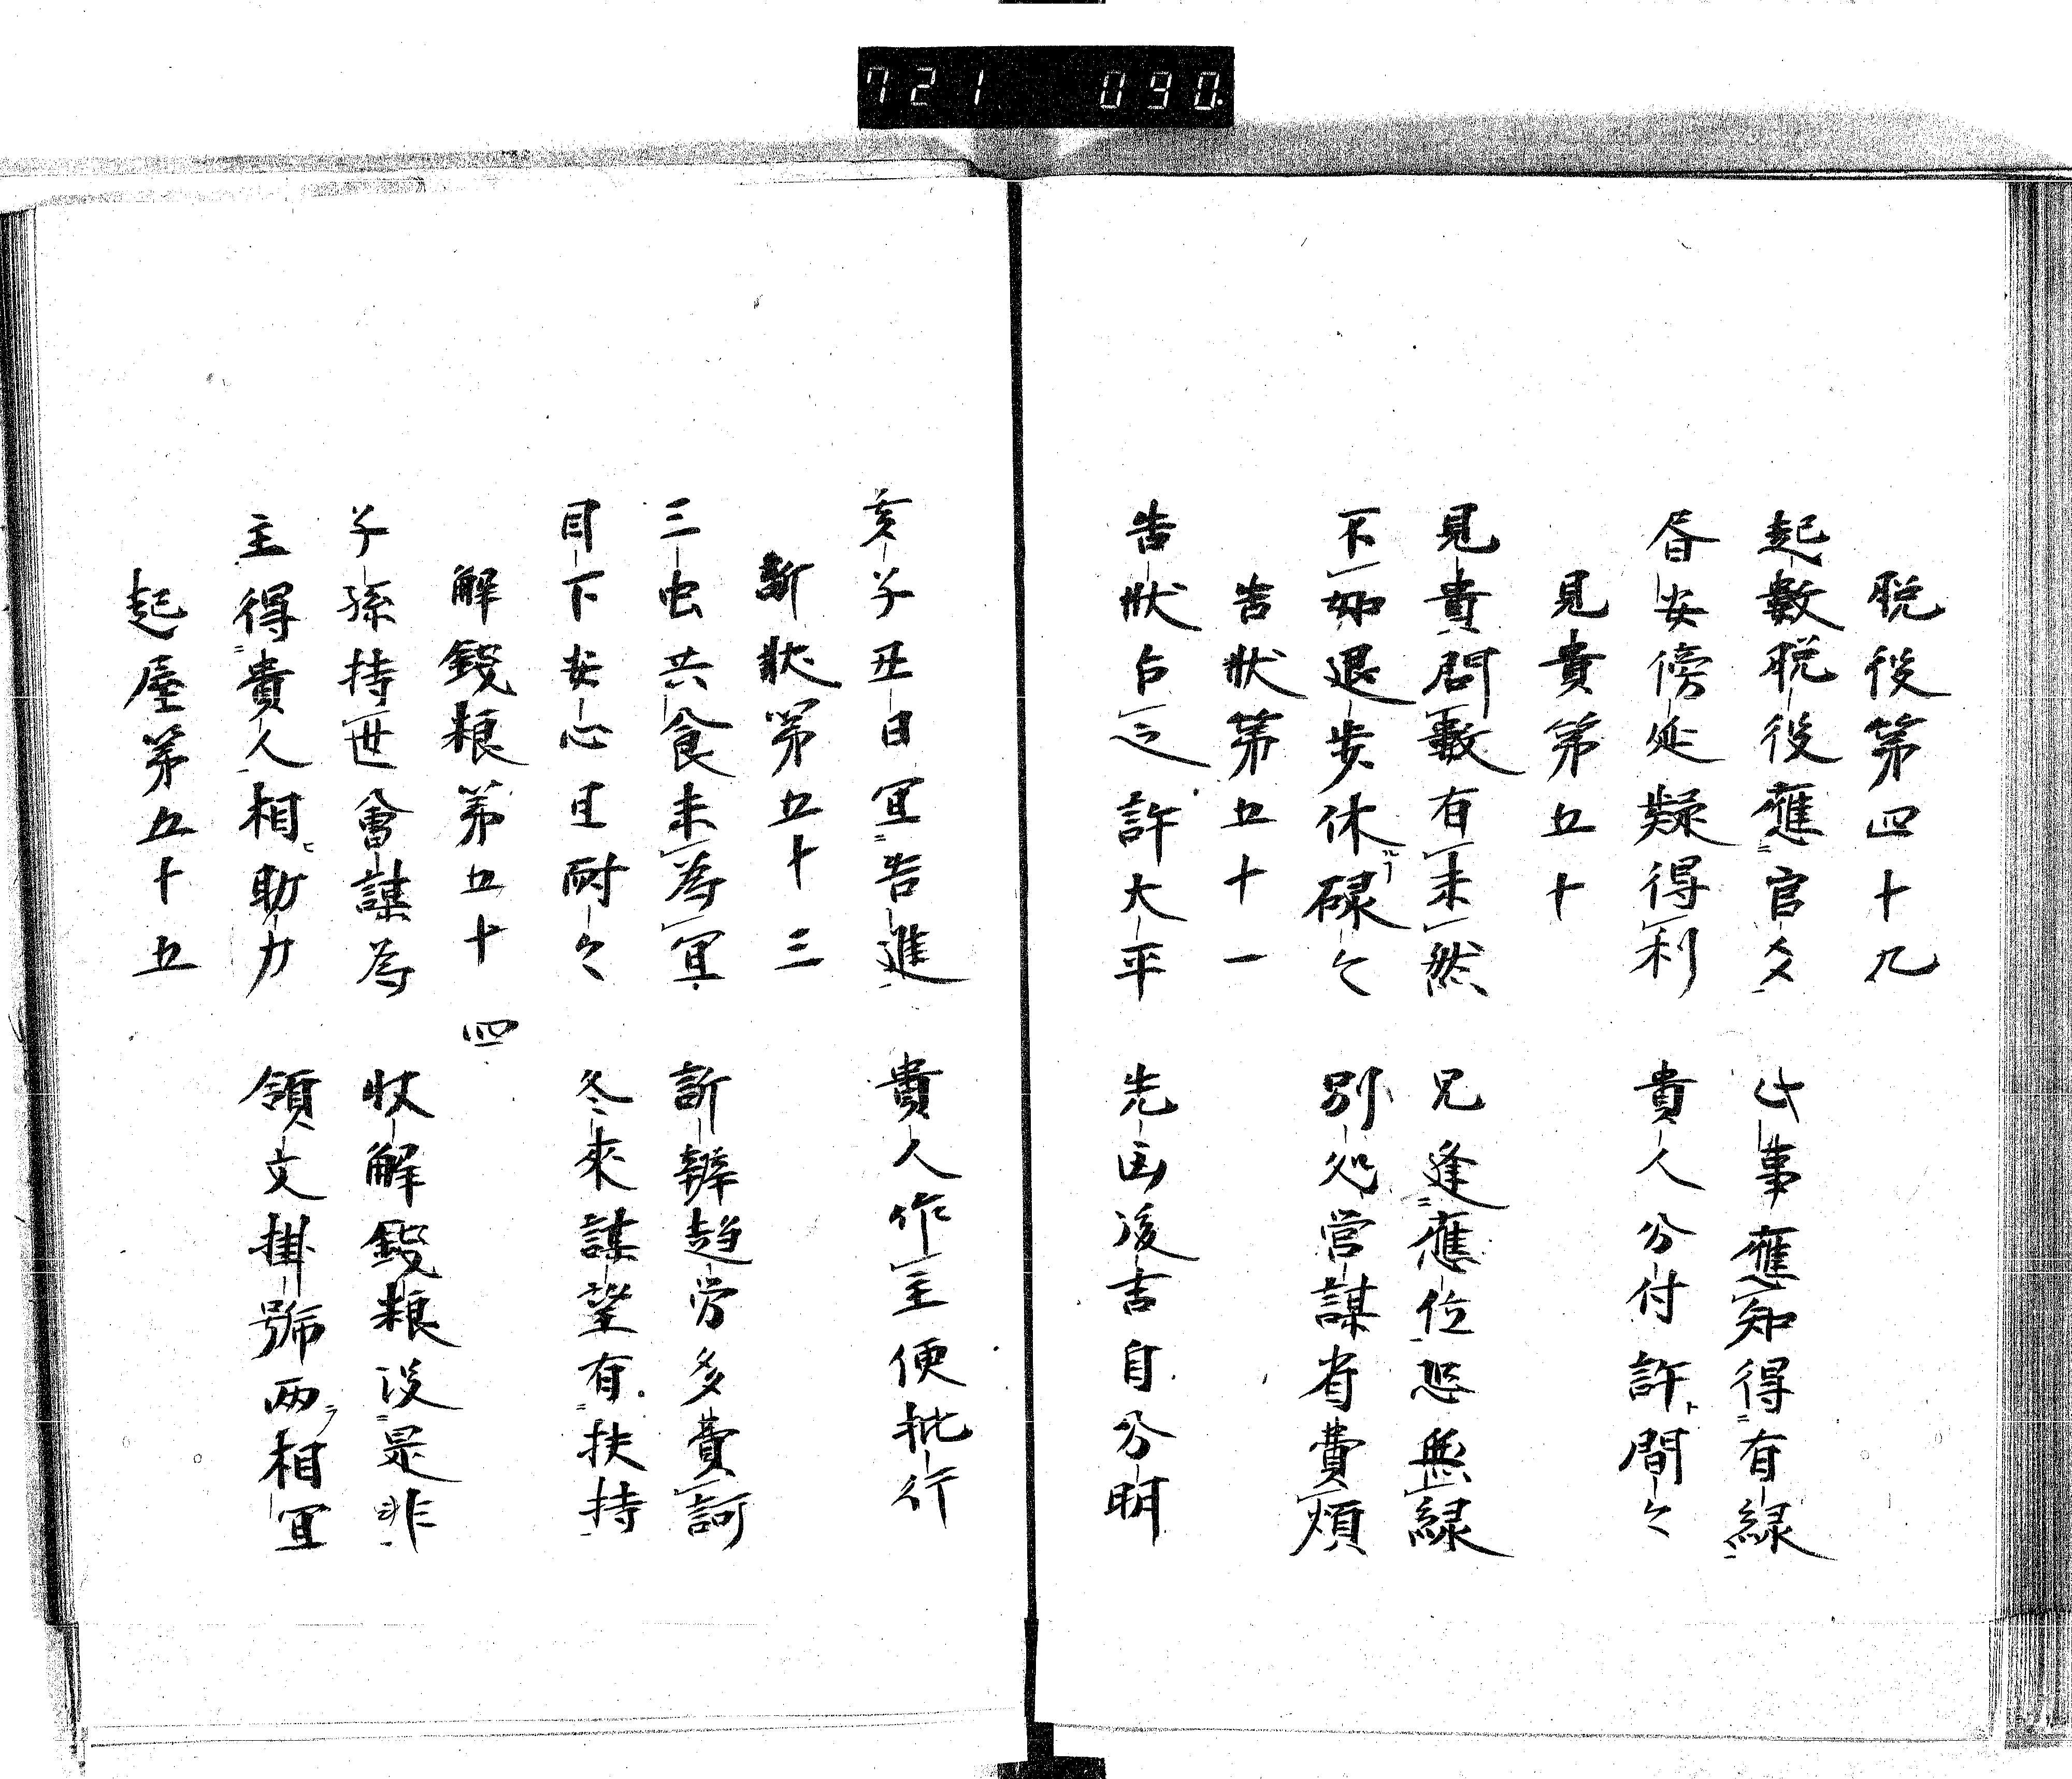 721 090
脱役第四十九
起數脱役應官爻 此事應知得有緑
昏安傍延疑得利 貴人分付許間々
見貴第五十
見貴問數有未然 兄逢應位恐無緑
不如退步休碌々 別処営謀省費煩
告狀第五十一
告狀占之許大平 先凶後吉自分明
亥子丑日宜告進 貴人作主便批行
訴狀第五十三
三虫共食未為宜 訴辨趋労多費訶
目下安心且耐々 冬來謀望有扶持
解錢粮第五十四
子孫持世會謀為 收解錢粮没是非
主得貴人相助力 領文掛號両相宜
起屋第五十五